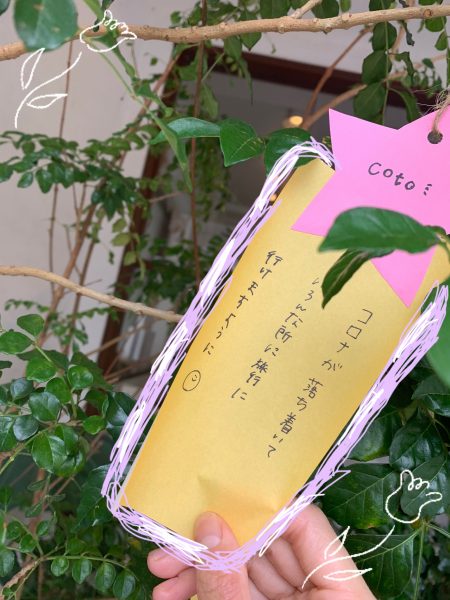 coto⋮
コロナが落ち着いて
いろんな所に旅行に
行けますように